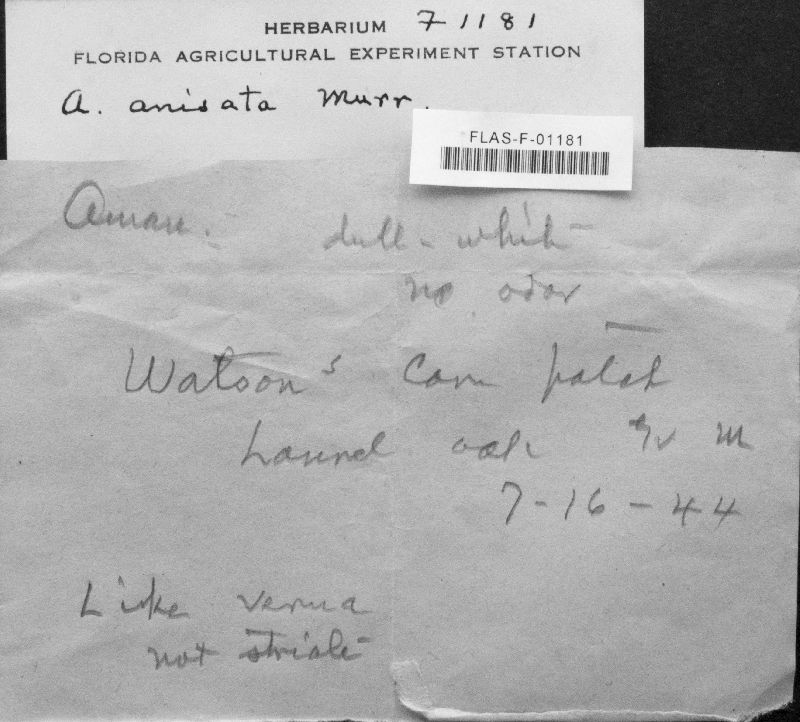 HERBARIUM F 1181
FLORIDA AGRICULTURAL EXPERIMENT STATION
A. anisata Murr.
FLAS-F-01181
Aman. dull-white
no odor
Watson's Corn patch
Laurel oak
7-16-44
Like verna
not striate